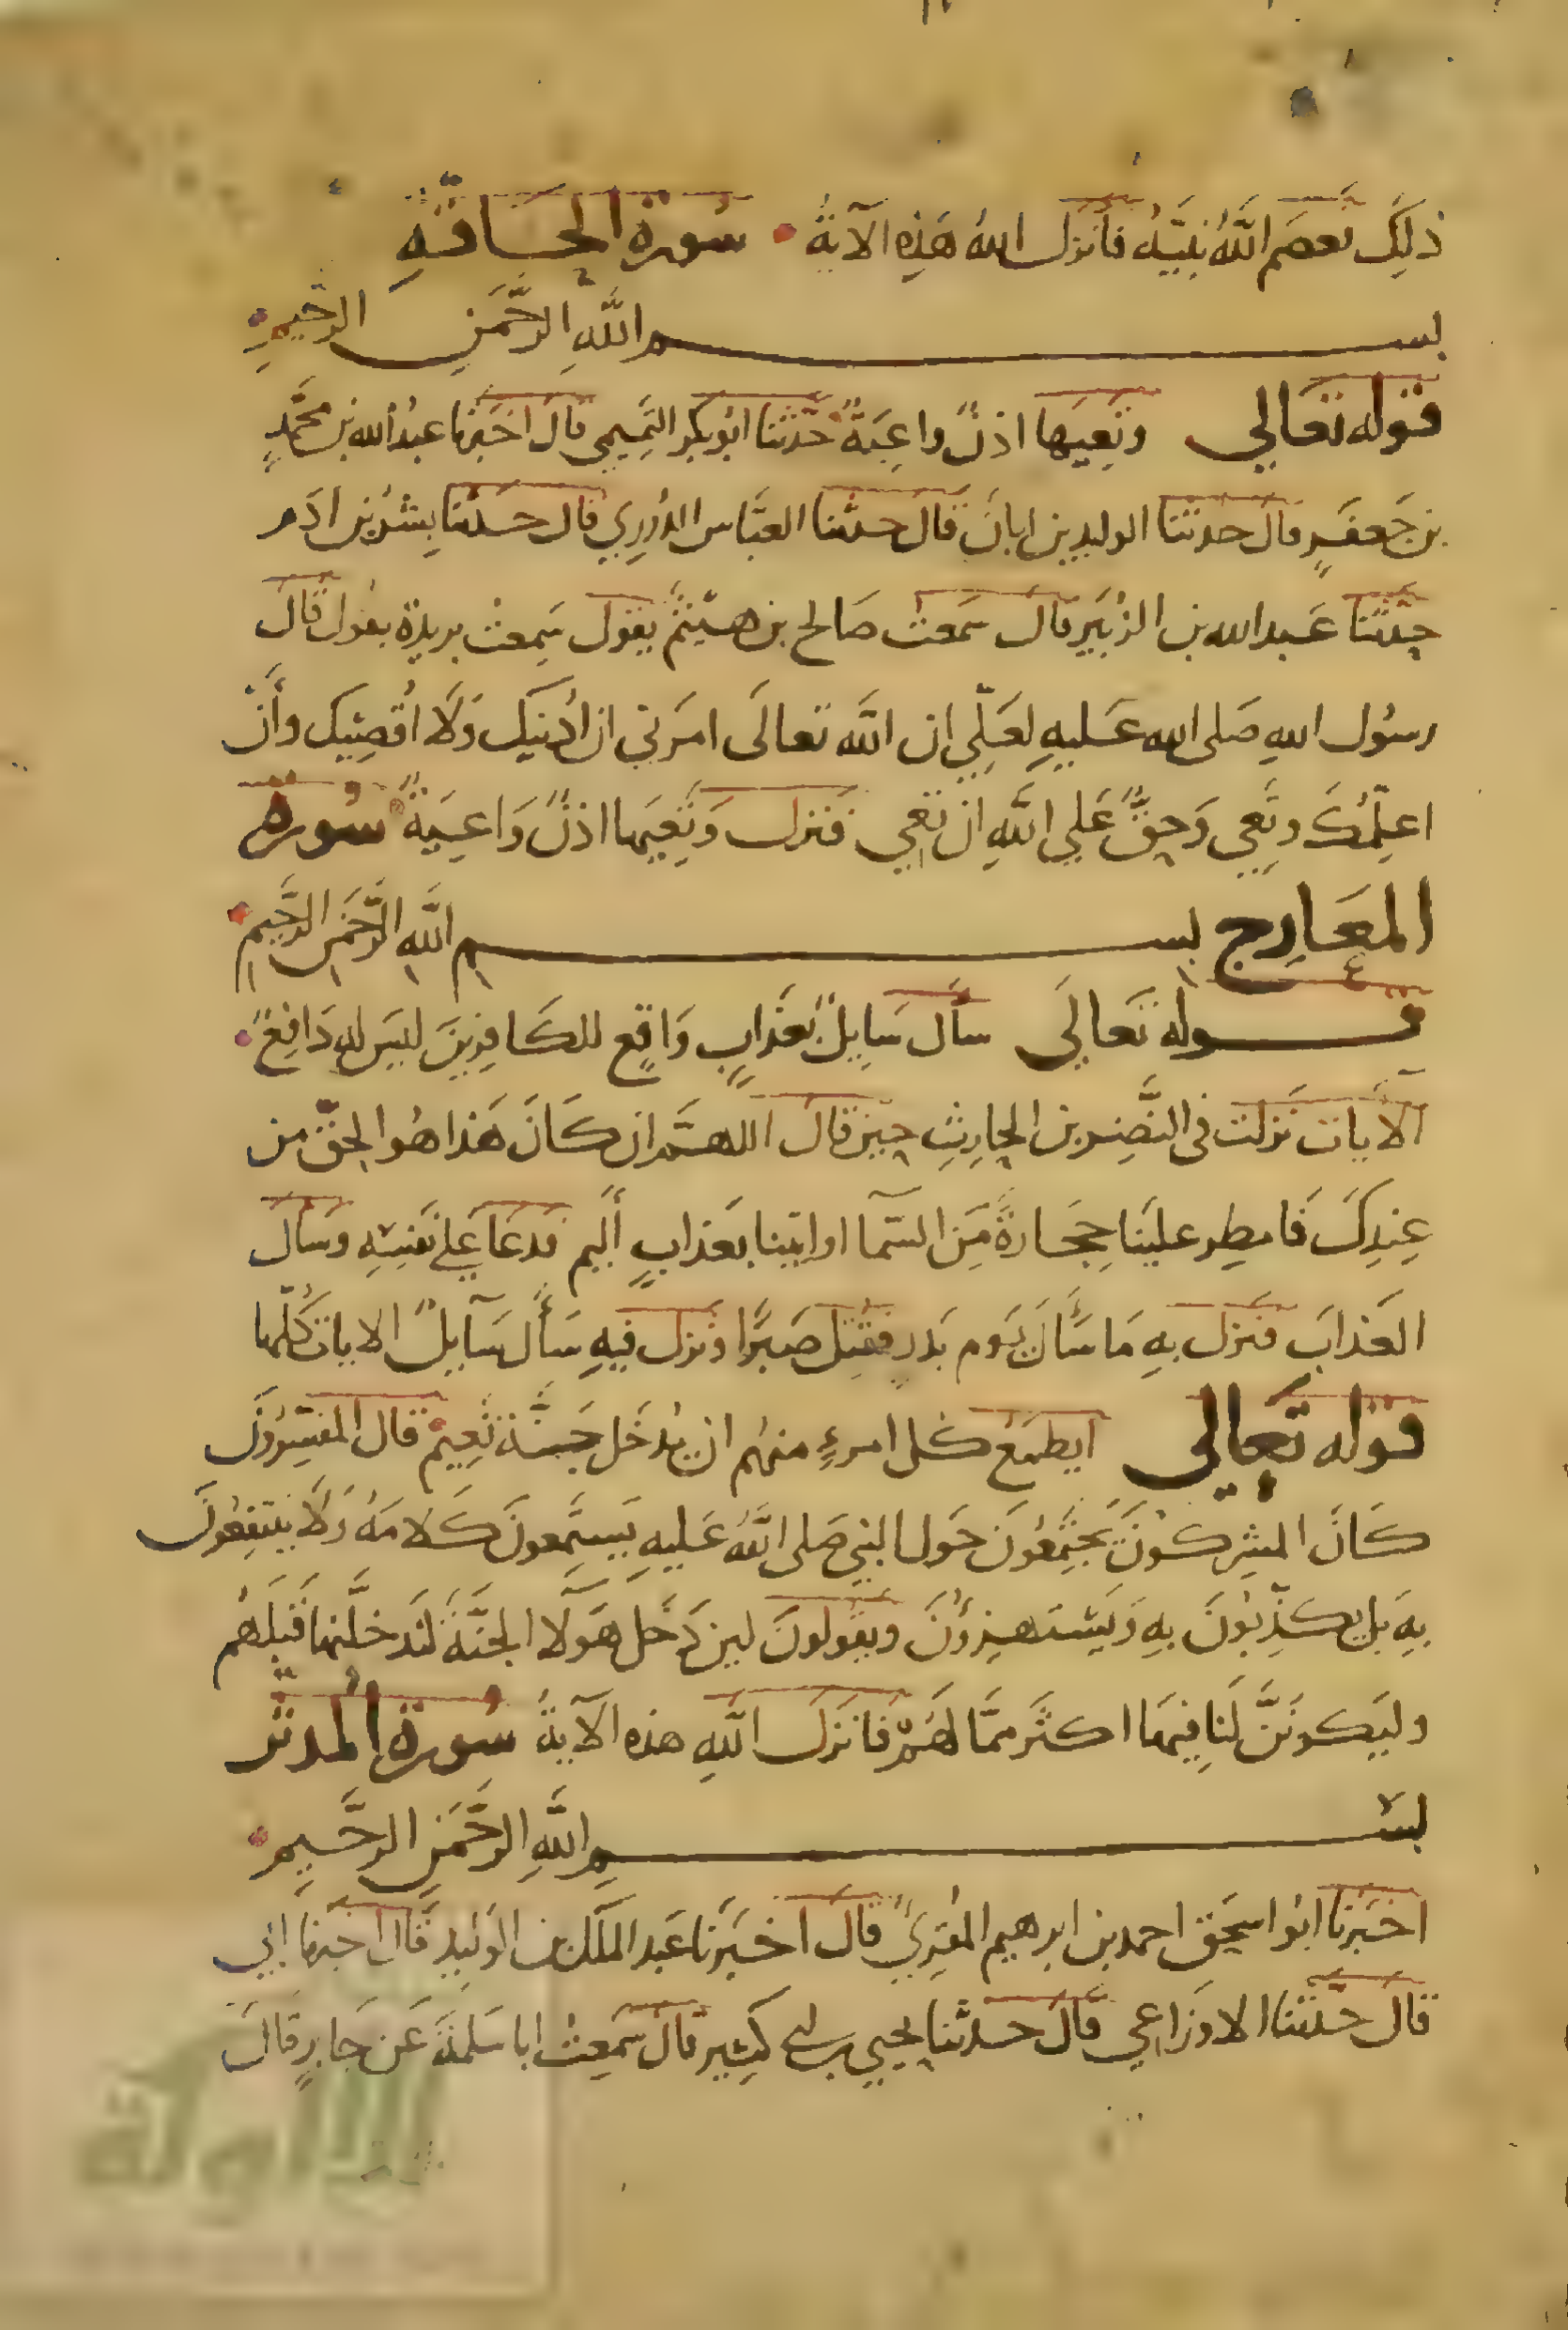 ذلِكَ فعصَم اللَّهُ نبيَّهُ فأنزل اللهُ هَذِهِ الآيَةُ سُورة الحَاقَّةِ
بسم اللَّهِ الرَّحْمَنِ الرحَيمِ
قوله تعَالي وتعِيَها اذنٌ واعِيَةٌ حَدثنا ابُوبكر التمِيمي قال اخبَرنا عبدُ الله بن محَمَّدٍ
بن جَعفَرٍ قال حَدثنا الوليد بن ابانَ قالَ حدثنا العبَّاس الدُّورِي قال حدثنا بِشرُ بن ادَم
حدَّثنا عَبد الله بن الزبَير قالَ سَمعتُ صَالح بن هيثم يقول سَمِعتُ بريدة يقول قالَ
رسُول اللهِ صَلى الله عَليهِ لعَلِيّ ان اللَّه تعالَى امرَني ان أُدنيَك وَلَا أُقصِيَك وأَنْ
اعلِّمُكَ وتَعِي وَحقٌّ عَلي اللَّهِ ان تَعِي فنزلَ وَتَعِيَها اذنٌ وَاعِيَةٌ سُورة
المعَارِج بسم اللَّهِ الرَّحمَنِ الرَّحِيم
قوله تعَالَى سَأَل سَايِلٌ بعَذابٍ وَاقعٍ للكَافِرينَ ليسَ لهِ دَافِعٌ
الآيات نَزلت في النَّضِر بن الحارِثِ حِينَ قال اللهمَّ ان كَانَ هَذا هُو الحقّ من
عِندِكَ فَامطِر علَينَا حِجَارةً مِنَ السَّمَآ اوايتِنا بعَذابٍ أَليم فدعَا عَلي نفسِهِ وسَأل
العَذابَ فنزل بهِ مَا سَأَلَ يَوم بَدرٍ فقُتِل صَبرًا ونزل فِيهِ سَأَل سَآيِلٌ الايات كُلّهَا
قوله تعَالي ايطمَعُ كل امرءٍ منهُم ان يُدخَل جَنَّةَ نَعِيم قال المفسِّرُونَ
كَانَ المشرِكُونَ يَجتمِعُونَ حَول النبي صَلى اللَّهُ عَليهِ يَستَمِعونَ كَلامَهُ وَلَا ينتفِعُونَ
بِهِ بل يكذِّبُونَ بِهِ وَيَستهزِؤُنَ ويقُولونَ لين دَخل هَولآ الجَنَّةَ لنَدخلَنَّها قَبلَهُم
وليَكونَنَّ لَنا فِيهَا اكثَر ممَّا لهَمْ فَانزلَ اللَّهِ هذه الآيةُ سُورة المُدثر
بسم اللَّهِ الرَّحْمَنِ الرحَّيم
اخبَرنا ابُو اسحق احمد بن ابرهيم المقرِيُ قالَ اخبَرنا عَبد الملك بن الوليد قَالَ اخبرنا ابي
قالَ حدَّثنا الاوزَاعِي قالَ حَدثنا يحيي بن ابي كثِير قالَ سَمِعتُ ابا سَلمَةَ عَن جَابرٍ قَالَ